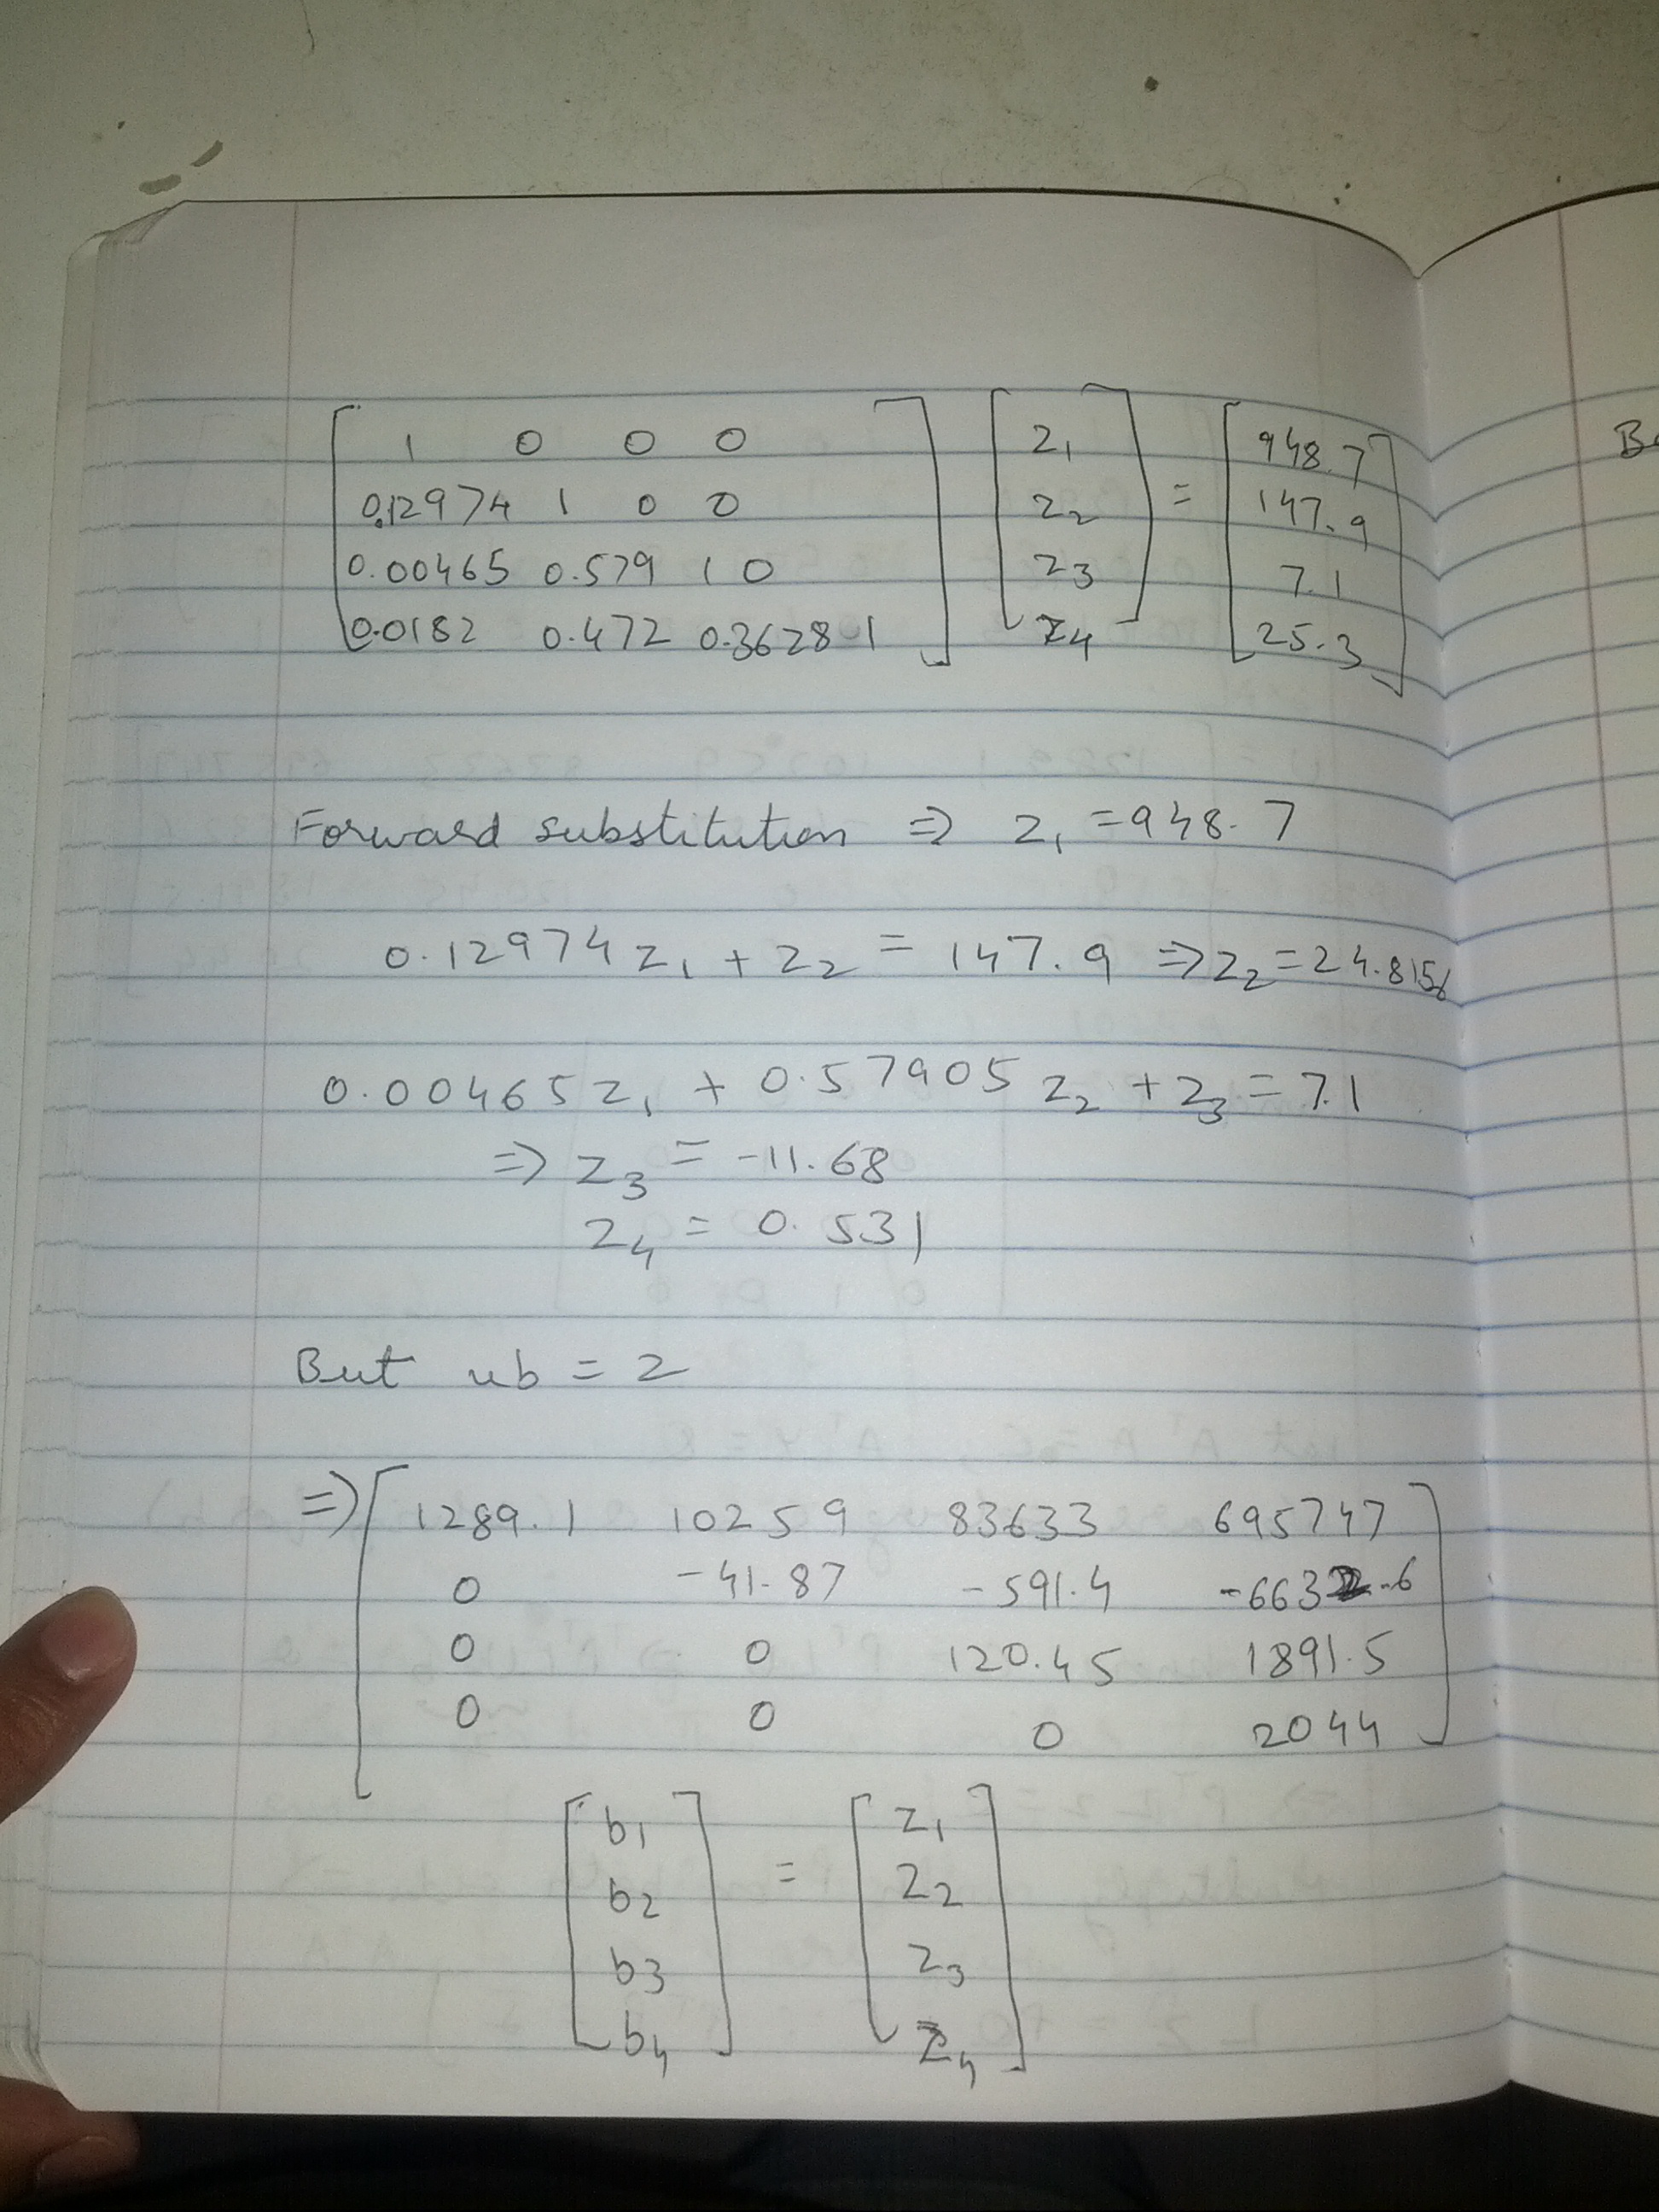 1 0 0 0
0.12974 1 0 0
0.00465 0.579 1 0
0.0182 0.472 0.3628 1
z1
z2
z3
z4
=
948.7
147.9
7.1
25.3
Forward substitution ⇒ z1 = 948.7
0.12974 z1 + z2 = 147.9 ⇒ z2 = 24.8156
0.00465 z1 + 0.57905 z2 + z3 = 7.1
⇒ z3 = -11.68
z4 = 0.531
But ub = z
⇒ 1289.1 10259 83633 695747
0 -41.87 -591.4 -6632.6
0 0 120.45 1891.5
0 0 0 2044
b1
b2
b3
b4
=
z1
z2
z3
z4